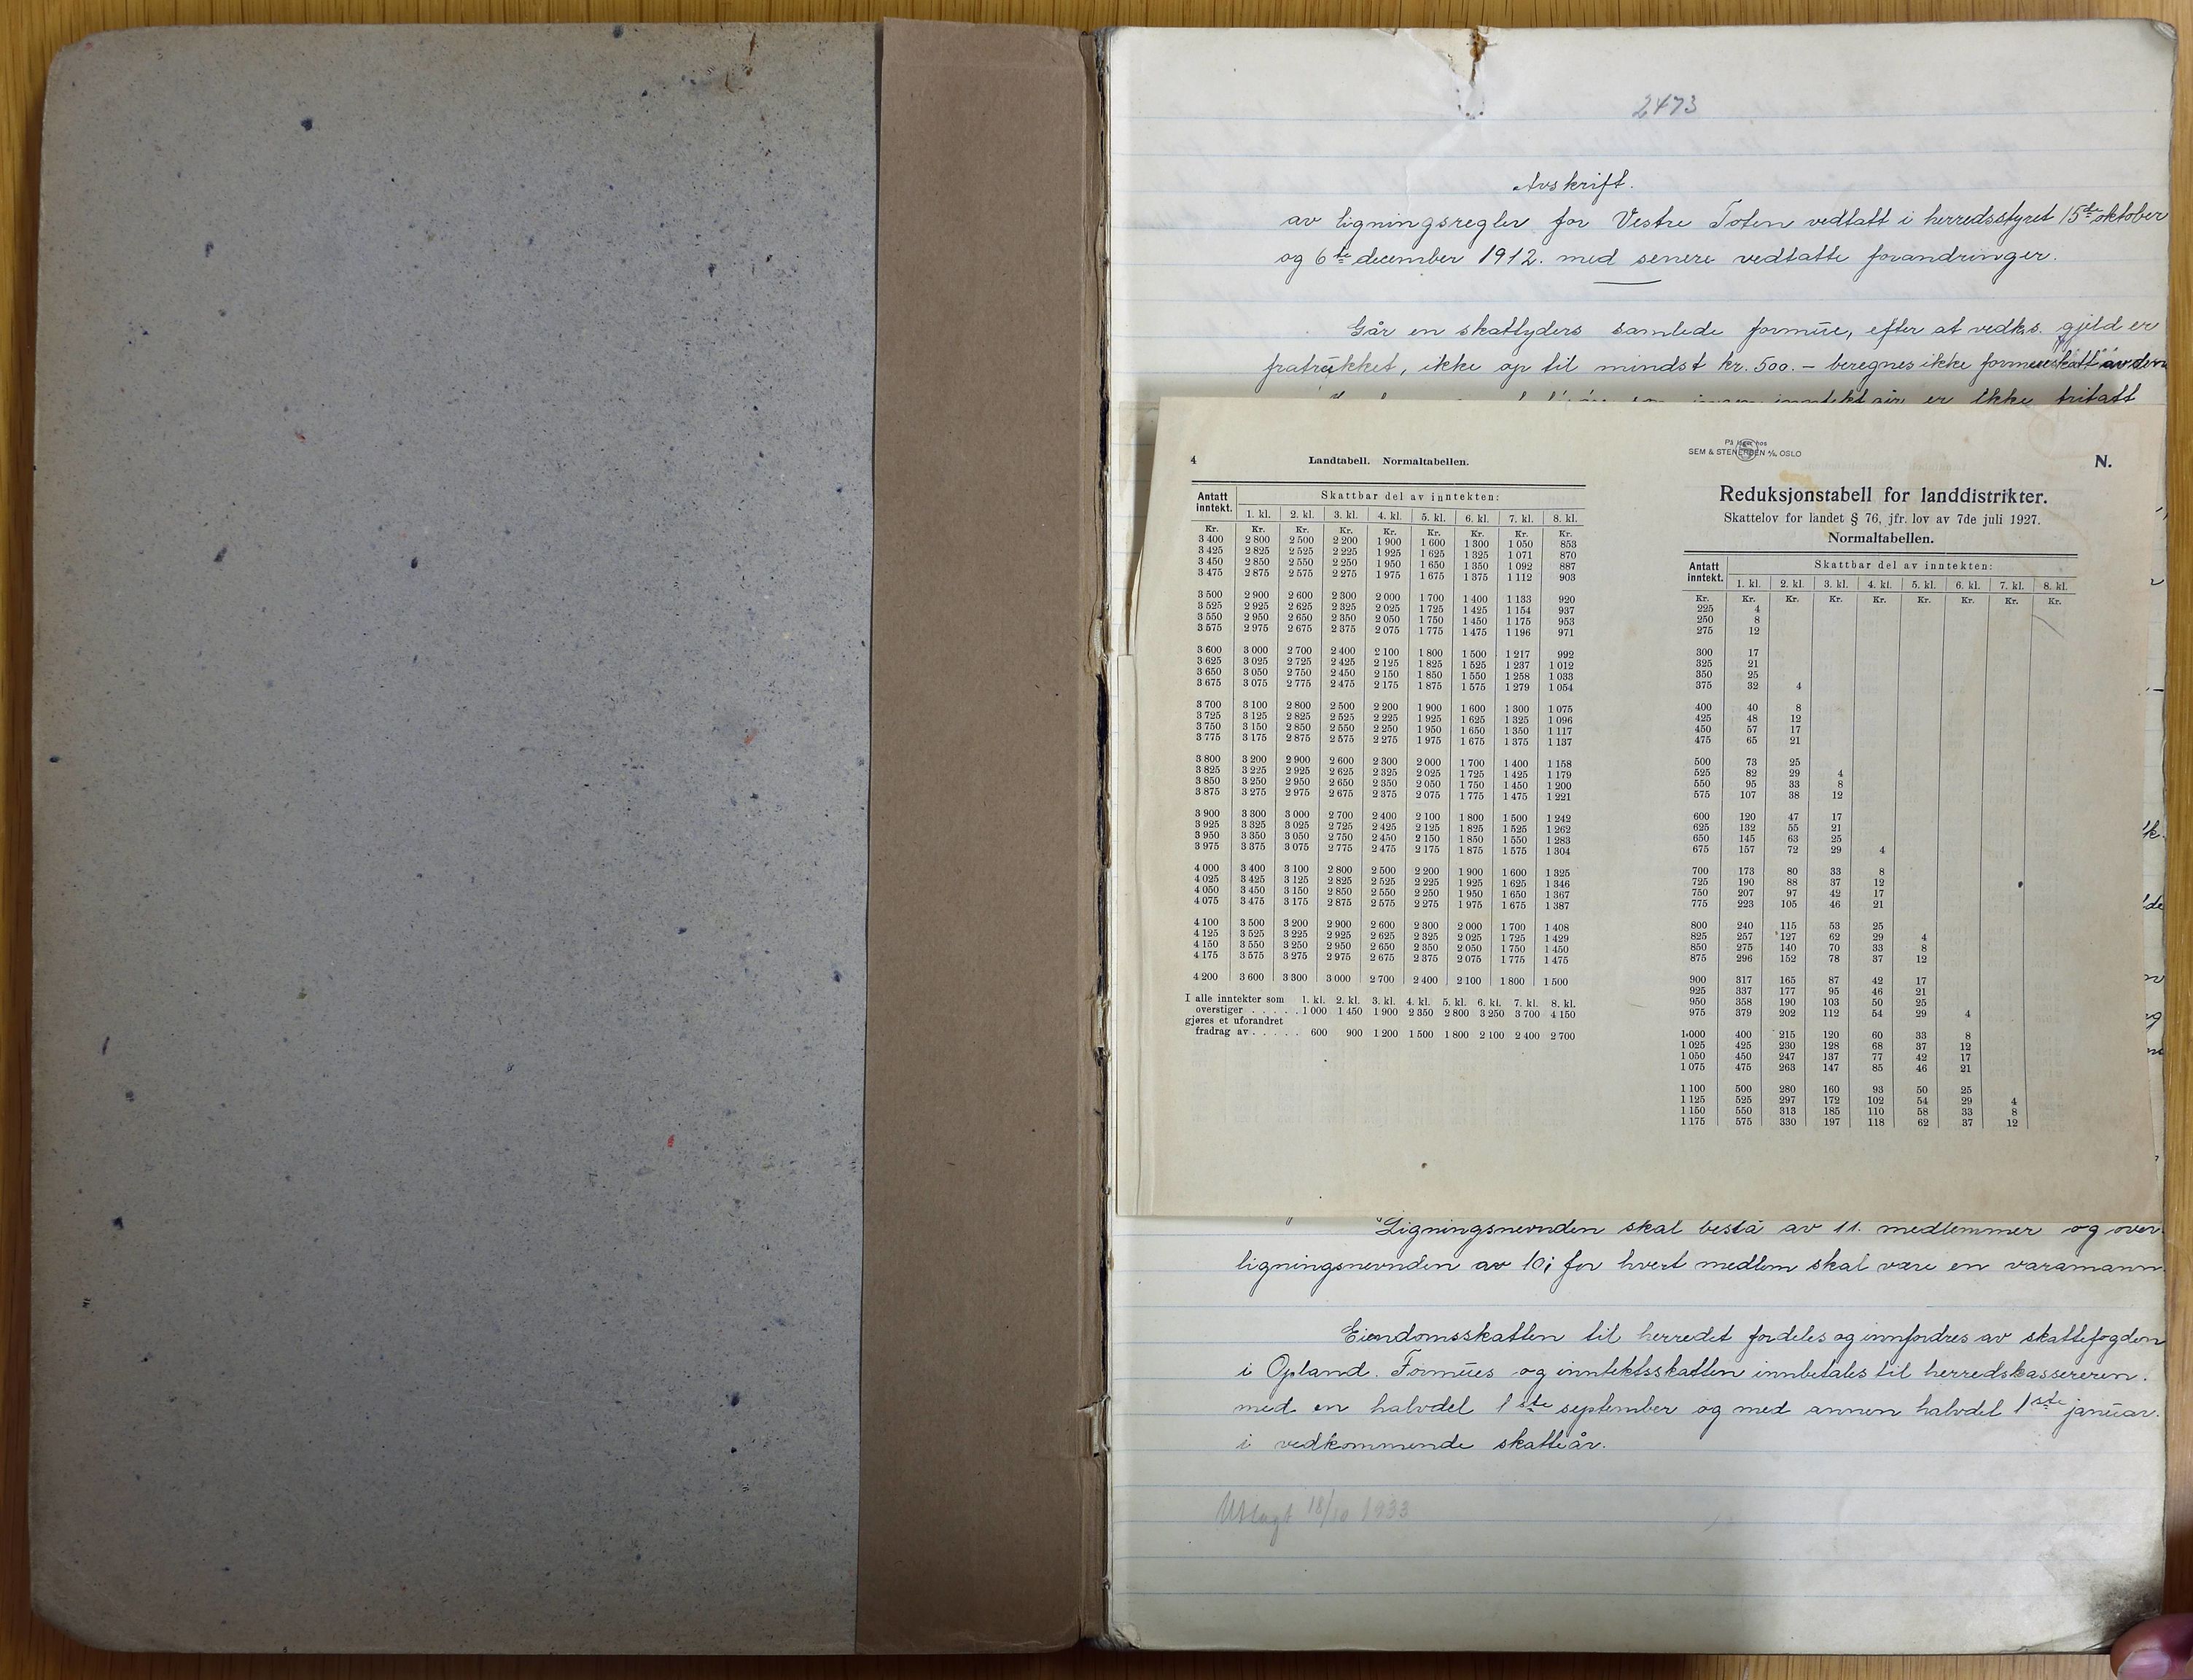 2473
Avskrift.
av ligningsregler for Vestre Toten vedtatt i herredsstyret 15de oktober
og 6te december 1912. med senere vedtatte forandringer.
Går en skattyders samlede formue, efter at vedks. gjeld er
fratrukket, ikke op til mindst kr. 500.- beregnes ikke formueskatt av den
som ingen inntekt gir er ikke fritatt
4 Landtabell. Normaltabellen.
Antatt inntekt. Skattbar del av inntekten:
1. kl. 2. kl. 3. kl. 4. kl. 5. kl. 6. kl. 7. kl. 8. kl.
Kr. Kr. Kr. Kr. Kr. Kr. Kr. Kr. Kr.
3 400 2 800 2 500 2 200 1 900 1 600 1 300 1 050 853
3 425 2 825 2 525 2 225 1 925 1 625 1 325 1 071 870
3 450 2 850 2 550 2 250 1 950 1 650 1 350 1 092 887
3 475 2 875 2 575 2 275 1 975 1 675 1 375 1 112 903
3 500 2 900 2 600 2 300 2 000 1 700 1 400 1 133 920
3 525 2 925 2 625 2 325 2 025 1 725 1 425 1 154 937
3 550 2 950 2 650 2 350 2 050 1 750 1 450 1 175 953
3 575 2 975 2 675 2 375 2 075 1 775 1 475 1 196 971
3 600 3 000 2 700 2 400 2 100 1 800 1 500 1 217 992
3 625 3 025 2 725 2 425 2 125 1 825 1 525 1 237 1 012
3 650 3 050 2 750 2 450 2 150 1 850 1 550 1 258 1 033
3 675 3 075 2 775 2 475 2 175 1 875 1 575 1 279 1 054
3 700 3 100 2 800 2 500 2 200 1 900 1 600 1 300 1 075
3 725 3 125 2 825 2 525 2 225 1 925 1 625 1 325 1 096
3 750 3 150 2 850 2 550 2 250 1 950 1 650 1 350 1 117
3 775 3 175 2 875 2 575 2 275 1 975 1 675 1 375 1 137
3 800 3 200 2 900 2 600 2 300 2 000 1 700 1 400 1 158
3 825 3 225 2 925 2 625 2 325 2 025 1 725 1 425 1 179
3 850 3 250 2 950 2 650 2 350 2 050 1 750 1 450 1 200
3 875 3 275 2 975 2 675 2 375 2 075 1 775 1 475 1 221
3 900 3 300 3 000 2 700 2 400 2 100 1 800 1 500 1 242
3 925 3 325 3 025 2 725 2 425 2 125 1 825 1 525 1 262
3 950 3 350 3 050 2 750 2 450 2 150 1 850 1 550 1 283
3 975 3 375 3 075 2 775 2 475 2 175 1 875 1 575 1 304
4 000 3 400 3 100 2 800 2 500 2 200 1 900 1 600 1 325
4 025 3 425 3 125 2 825 2 525 2 225 1 925 1 625 1 346
4 050 3 450 3 150 2 850 2 550 2 250 1 950 1 650 1 367
4 075 3 475 3 175 2 875 2 575 2 275 1 975 1 675 1 387
4 100 3 500 3 200 2 900 2 600 2 300 2 000 1 700 1 408
4 125 3 525 3 225 2 925 2 625 2 325 2 025 1 725 1 429
4 150 3 550 3 250 2 950 2 650 2 350 2 050 1 750 1 450
4 175 3 575 3 275 2 975 2 675 2 375 2 075 1 775 1 475
4 200 3 600 3 300 3 000 2 700 2 400 2 100 1 800 1 500
I alle inntekter som 1. kl. 2. kl. 3. kl. 4. kl. 5. kl. 6. kl. 7. kl. 8. kl.
overstiger . . . . . 1 000 1 450 1 900 2 350 2 800 3 250 3 700 4 150
gjøres et uforandret
fradrag av . . . . . 600 900 1 200 1 500 1 800 2 100 2 400 2 700
På lager hos
SEM & STENERSEN A/S, OSLO
N.
Reduksjonstabell for landdistrikter.
Skattelov for landet § 76, jfr. lov av 7de juli 1927.
Normaltabellen.
Antatt inntekt. Skattbar del av inntekten:
1. kl. 2. kl. 3. kl. 4. kl. 5. kl. 6. kl. 7. kl. 8. kl.
Kr. Kr. Kr. Kr. Kr. Kr. Kr. Kr. Kr.
225 4
250 8
275 12
300 17
325 21
350 25
375 32 4
400 40 8
425 48 12
450 57 17
475 65 21
500 73 25
525 82 29 4
550 95 33 8
575 107 38 12
600 120 47 17
625 132 55 21
650 145 63 25
675 157 72 29 4
700 173 80 33 8
725 190 88 37 12
750 207 97 42 17
775 223 105 46 21
800 240 115 53 25
825 257 127 62 29 4
850 275 140 70 33 8
875 296 152 78 37 12
900 317 165 87 42 17
925 337 177 95 46 21
950 358 190 103 50 25
975 379 202 112 54 29 4
1 000 400 215 120 60 33 8
1 025 425 230 128 68 37 12
1 050 450 247 137 77 42 17
1 075 475 263 147 85 46 21
1 100 500 280 160 93 50 25
1 125 525 297 172 102 54 29 4
1 150 550 313 185 110 58 33 8
1 175 575 330 197 118 62 37 12
Ligningsnevnden skal bestå av 11. medlemmer og over-
ligningsnevnden av 10; for hvert medlem skal være en varamann
Eiendomsskatten til herredet fordeles og innfordres av skattefogden
i Opland. Formues og inntektsskatten innbetales til herredskassereren.
med en halvdel 1ste september og med annen halvdel 1ste januar.
i vedkommende skatteår.
Utlagt 18/10 1933